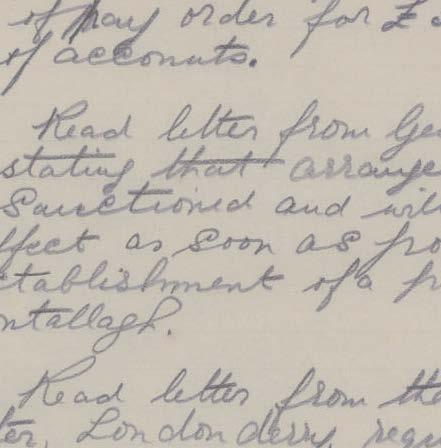 of pay order for £
of acconuts.
Read letter from Ge
stating that arrange
Sanctioned and will
ffect as soon as pro
stablishment of a pr
ntallagh.
Read letter from the
ter, Londonderry, requ